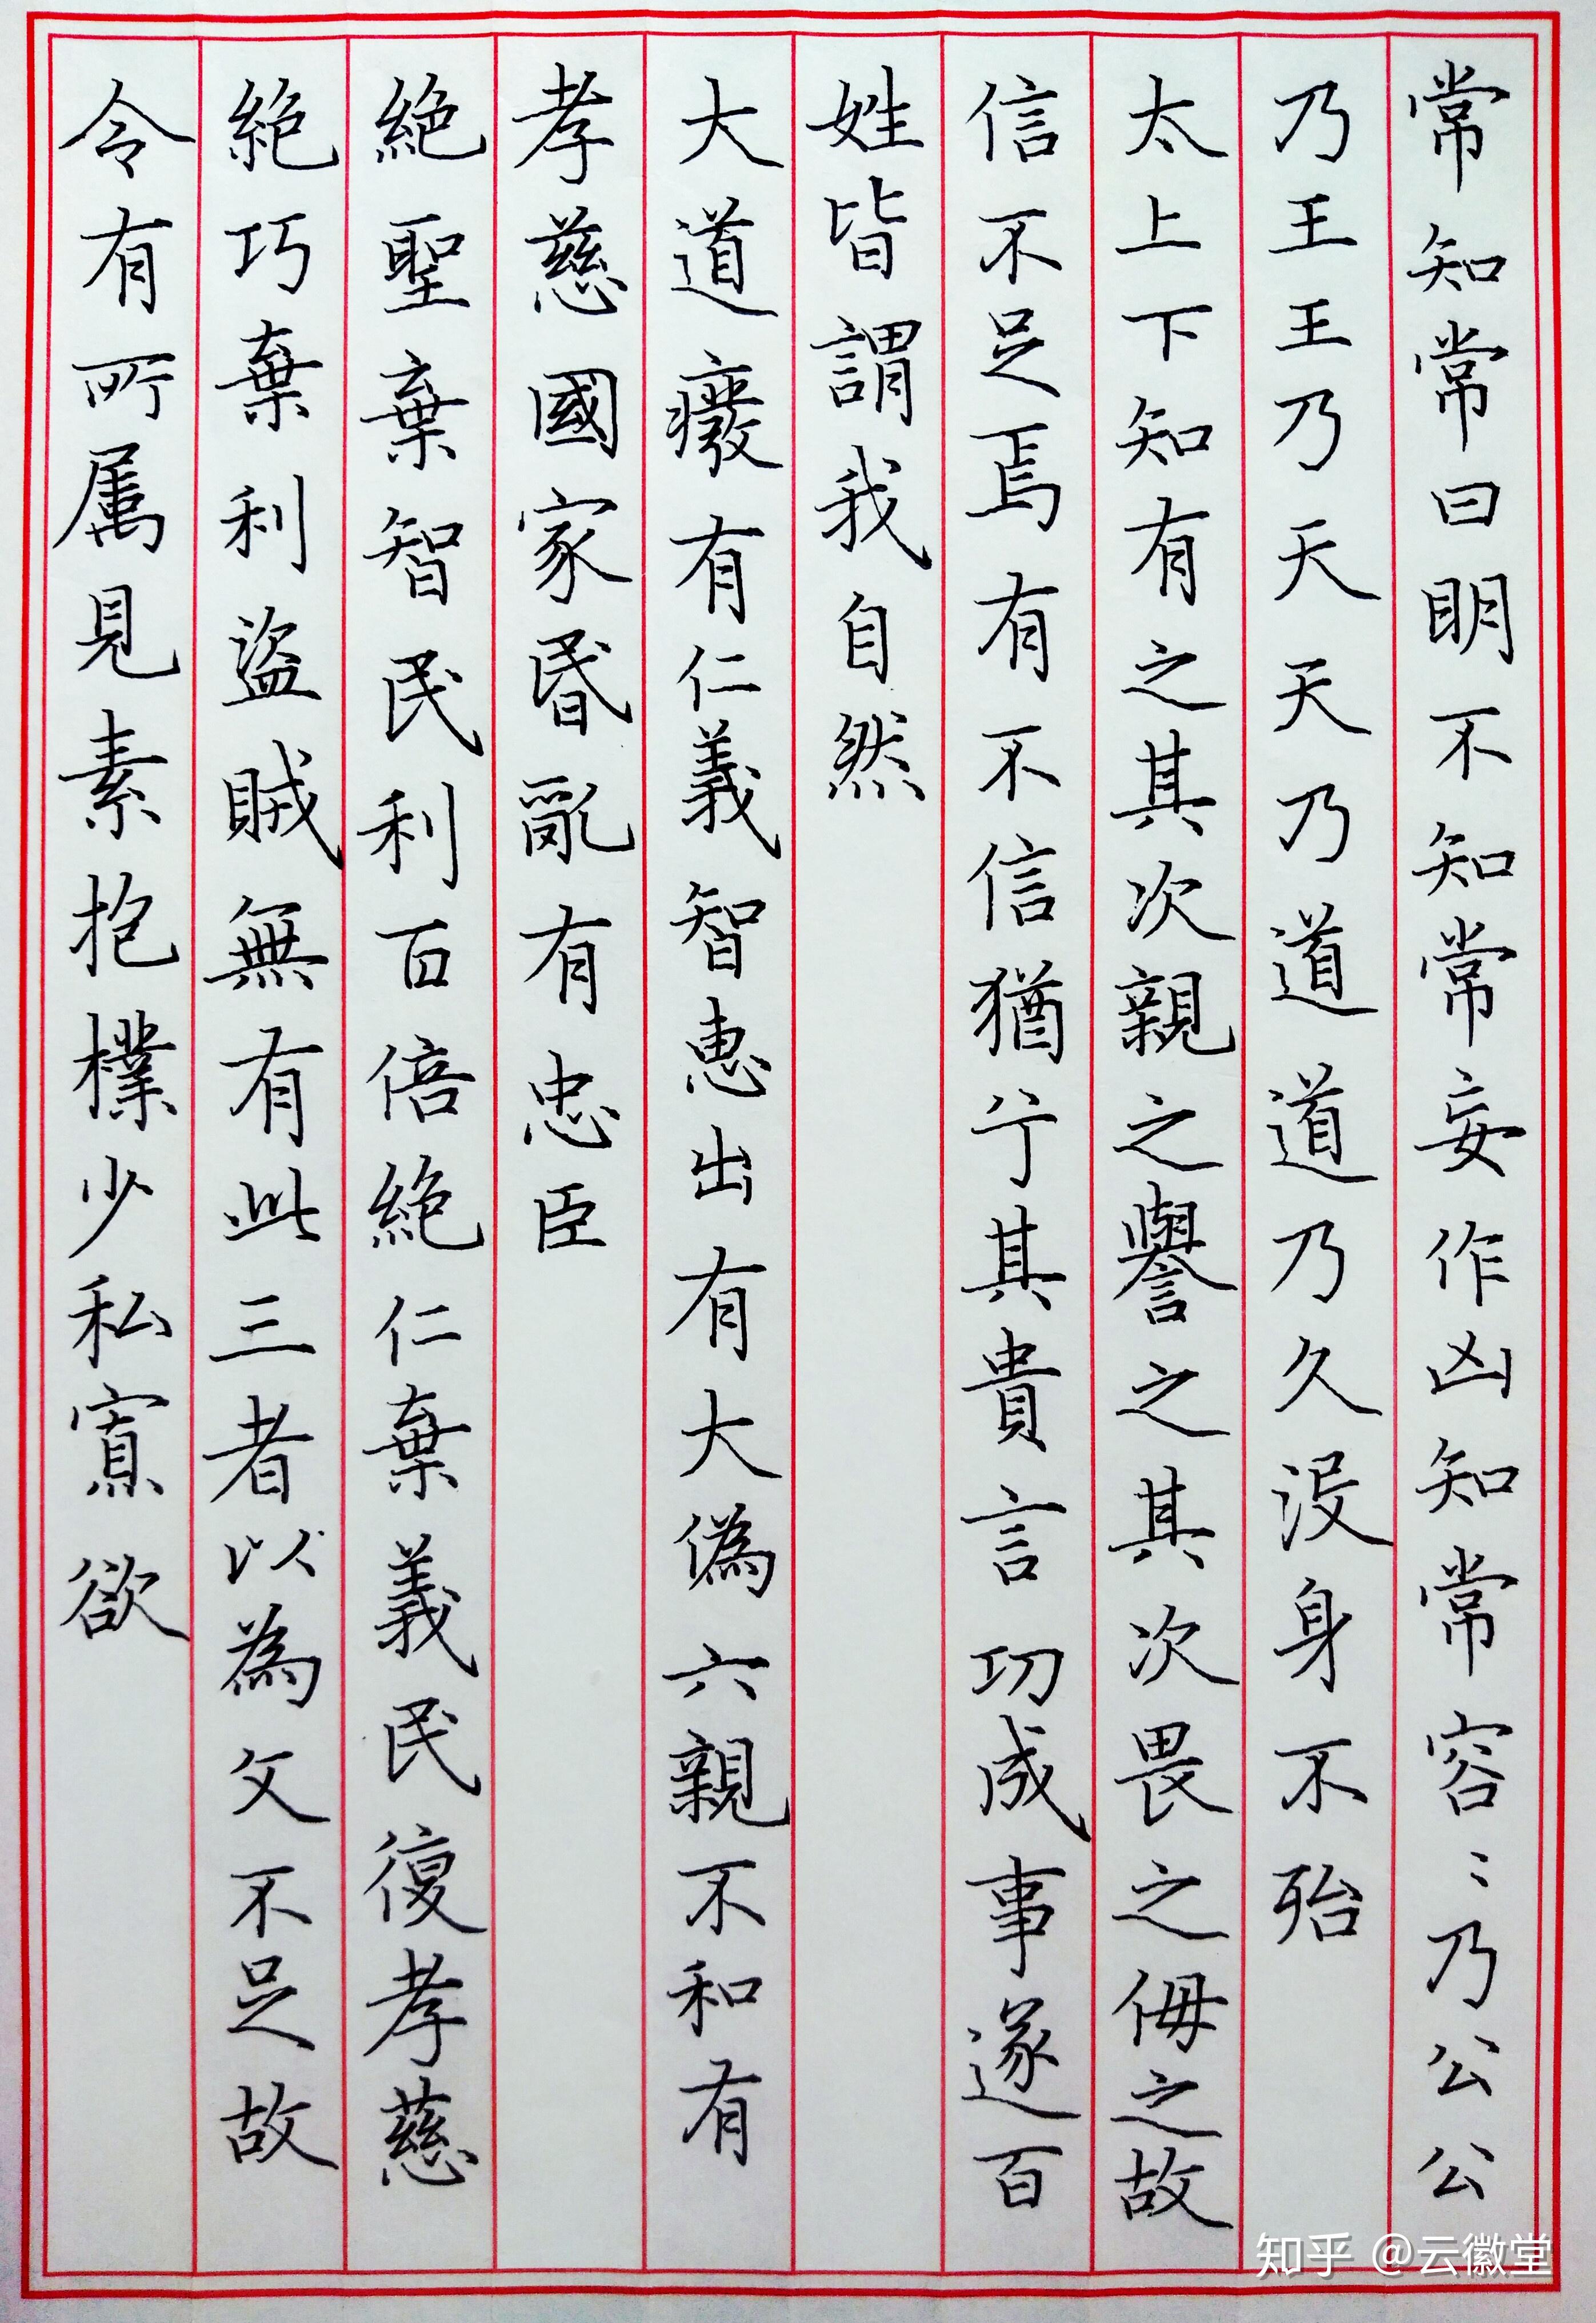 常知常曰明不知常妄作凶知常容〻乃公公
乃王王乃天天乃道道乃久没身不殆
太上下知有之其次親之譽之其次畏之侮之故
信不足焉有不信猶兮其貴言功成事遂百
姓皆謂我自然
大道癈有仁義智惠出有大偽六親不和有
孝慈國家昬亂有忠臣
絶聖棄智民利百倍絶仁棄義民復孝慈
絶巧棄利盜賊無有此三者以為文不足故
令有所属見素抱樸少私寡欲
知乎 @云徽堂